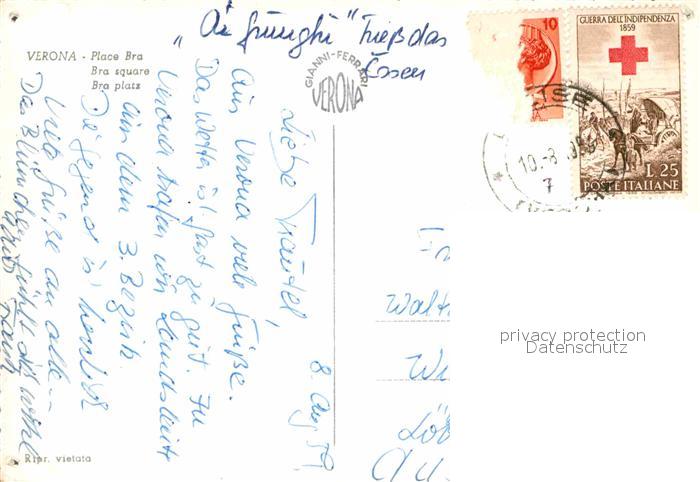 "Ai funghi" hieß das
Essen
VERONA - Place Bra
Bra square
Bra platz
GIANNI-FERRARI
VERONA
10
GUERRA DELL'INDIPENDENZA
1859
L.25
POSTE ITALIANE
10.-8.1959
7
8. Aug 59
Liebe Trautel!
Aus Verona viele Grüße.
Das Wetter ist fast zu gut. In
Verona trafen wir Landsleute
aus dem 3. Bezirk.
Die Gegend ist herrlich
Viele Grüße an alle
Das Blümchen fühlt sich wohl
Walt
Wi
privacy protection
Datenschutz
Ripr. vietata